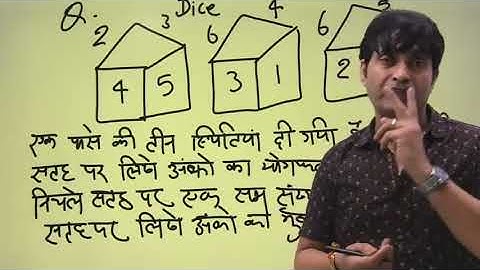 Q. Dice
2 3 6 4 6
4 5 3 1 2
एक पासे की तीन स्थितियां दी गयी
सतह पर लिखे अंको का योगफल
निचले सतह पर एक सम
सतह पर लिखे अंको का